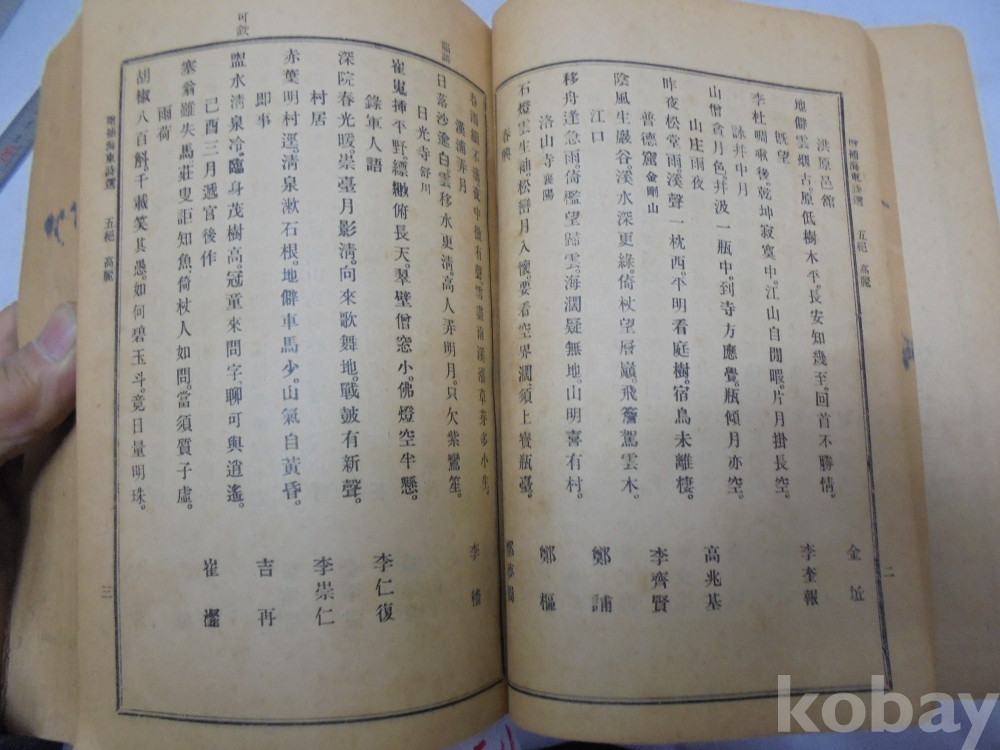 增補海東詩選 五絕 高麗 二
洪原邑館 金坵
地僻雲烟古。原低樹木平。長安知幾至。回首不勝情。
旣望 李奎報
李杜啁啾後。乾坤寂寞中。江山自閒暇。片月掛長空。
詠井中月
山僧貪月色。幷汲一瓶中。到寺方應覺。瓶傾月亦空。
山庄雨夜 高兆基
昨夜松堂雨。溪聲一枕西。平明看庭樹。宿鳥未離棲。
普德窟 金剛山 李齊賢
陰風生巖谷。溪水深更綠。倚杖望層巓。飛簷駕雲木。
江口 鄭誧
移舟逢急雨。倚檻望歸雲。海濶疑無地。山明喜有村。
洛山寺 襄陽 鄭樞
石燈雲生袖。松巒月入懷。要看空界濶。須上寶瓶臺。
春興 鄭夢周
春雨細不滴。夜中微有聲。雪盡南溪漲。草芽多小生。
漢浦弄月 李穡
日落沙逾白。雲移水更清。高人弄明月。只欠紫鸞笙。
日光寺 舒川
崔嵬揷平野。縹緲俯長天。翠壁僧窓小。佛燈空半懸。
錄軍人語 李仁復
深院春光暖。崇臺月影清。向來歌舞地。戰皷有新聲。
村居 李崇仁
赤葉明村逕。清泉漱石根。地僻車馬少。山氣自黃昏。
即事 吉再
盥水清泉冷。臨身茂樹高。冠童來問字。聊可與逍遙。
己酉三月遞官後作 崔瀣
塞翁雖失馬。莊叟詎知魚。倚杖人如問。當須質子虛。
雨荷
胡椒八百斛。千載笑其愚。如何碧玉斗。竟日量明珠。
增補海東詩選 五絕 高麗 三
kobay